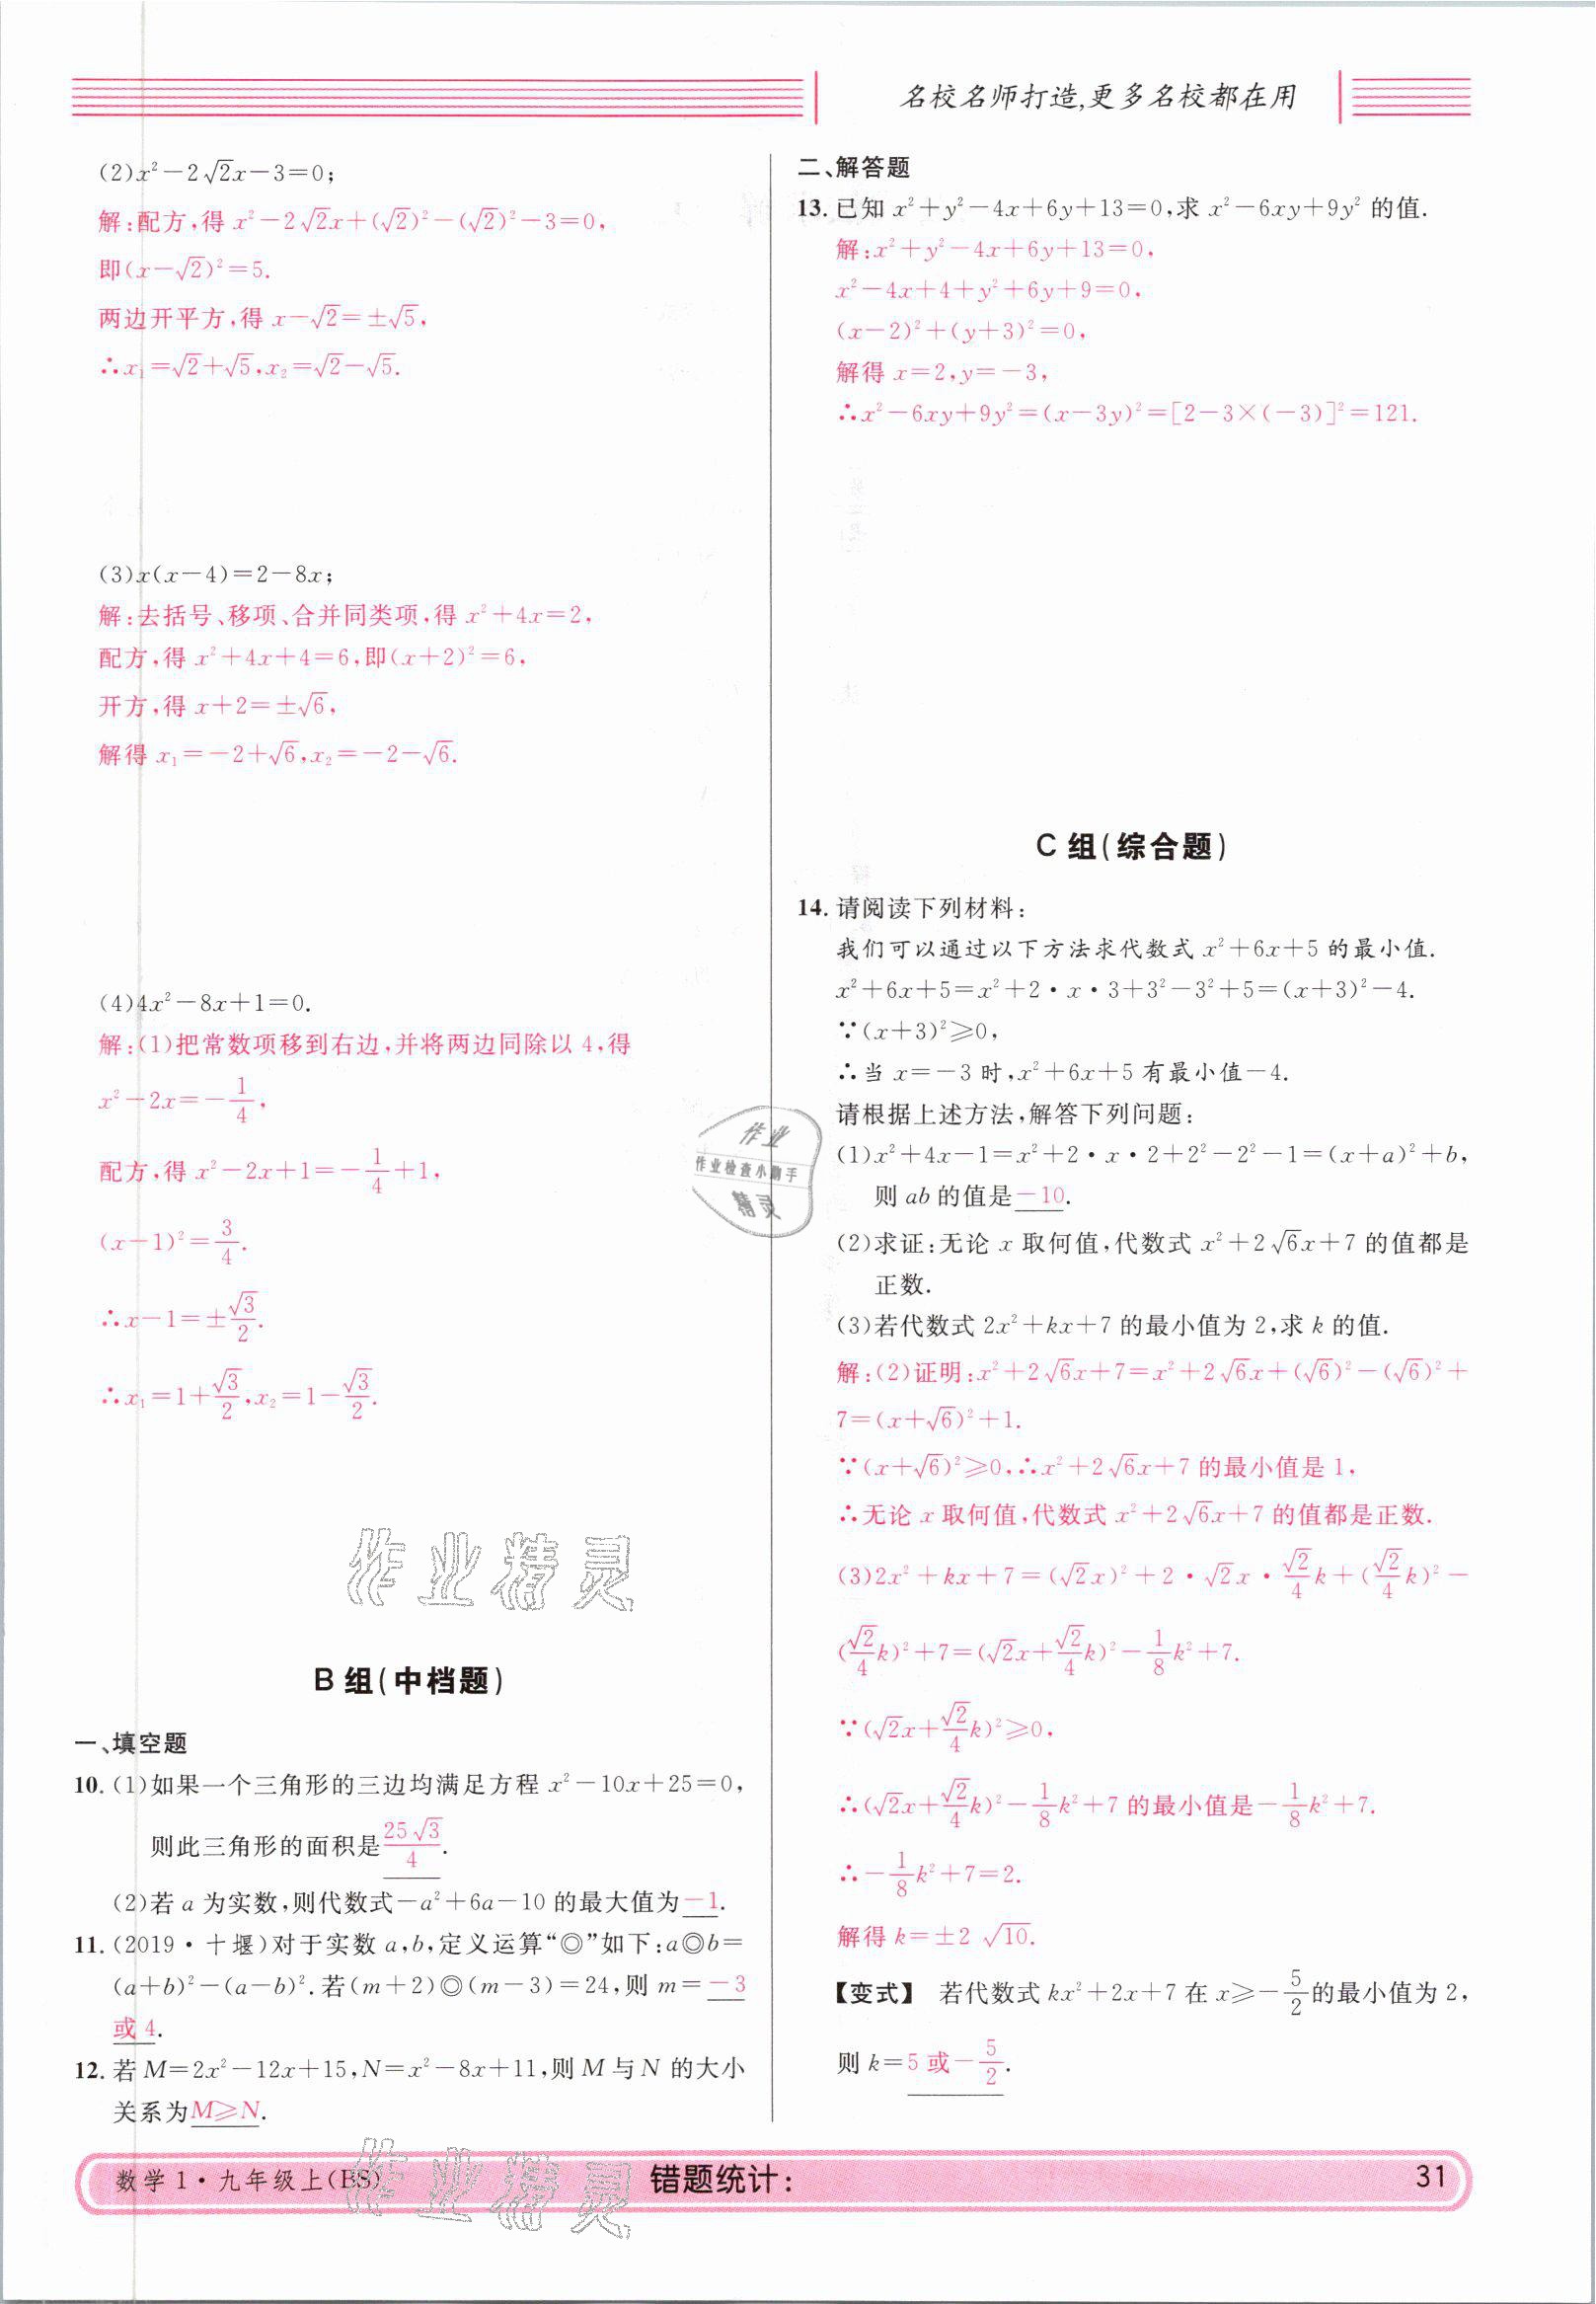 名校名师打造,更多名校都在用
(2)x²-2√2x-3=0;
解:配方,得 x²-2√2x+(√2)²-(√2)²-3=0,
即(x-√2)²=5.
两边开平方,得 x-√2=±√5,
∴x₁=√2+√5,x₂=√2-√5.
(3)x(x-4)=2-8x;
解:去括号、移项、合并同类项,得 x²+4x=2,
配方,得 x²+4x+4=6,即(x+2)²=6,
开方,得 x+2=±√6,
解得 x₁=-2+√6,x₂=-2-√6.
(4)4x²-8x+1=0.
解:(1)把常数项移到右边,并将两边同除以 4,得
x²-2x=-1/4,
配方,得 x²-2x+1=-1/4+1,
(x-1)²=3/4.
∴x-1=±√3/2.
∴x₁=1+√3/2,x₂=1-√3/2.
作业精灵
B 组(中档题)
一、填空题
10. (1)如果一个三角形的三边均满足方程 x²-10x+25=0,
则此三角形的面积是 25√3/4.
(2)若 a 为实数,则代数式-a²+6a-10 的最大值为 -1.
11. (2019·十堰)对于实数 a,b,定义运算“◎”如下:a◎b=
(a+b)²-(a-b)².若(m+2)◎(m-3)=24,则 m= -3
或 4.
12. 若 M=2x²-12x+15,N=x²-8x+11,则 M 与 N 的大小
关系为M≥N.
二、解答题
13. 已知 x²+y²-4x+6y+13=0,求 x²-6xy+9y² 的值.
解:x²+y²-4x+6y+13=0,
x²-4x+4+y²+6y+9=0,
(x-2)²+(y+3)²=0,
解得 x=2,y=-3,
∴x²-6xy+9y²=(x-3y)²=[2-3×(-3)]²=121.
C 组(综合题)
14. 请阅读下列材料:
我们可以通过以下方法求代数式 x²+6x+5 的最小值.
x²+6x+5=x²+2·x·3+3²-3²+5=(x+3)²-4.
∵(x+3)²≥0,
∴当 x=-3 时,x²+6x+5 有最小值-4.
请根据上述方法,解答下列问题:
(1)x²+4x-1=x²+2·x·2+2²-2²-1=(x+a)²+b,
则 ab 的值是 -10.
(2)求证:无论 x 取何值,代数式 x²+2√6x+7 的值都是
正数.
(3)若代数式 2x²+kx+7 的最小值为 2,求 k 的值.
解:(2)证明:x²+2√6x+7=x²+2√6x+(√6)²-(√6)²+
7=(x+√6)²+1.
∵(x+√6)²≥0,∴x²+2√6x+7 的最小值是 1,
∴无论 x 取何值,代数式 x²+2√6x+7 的值都是正数.
(3)2x²+kx+7=(√2x)²+2·√2x·√2/4k+(√2/4k)²-
(√2/4k)²+7=(√2x+√2/4k)²-1/8k²+7.
∵(√2x+√2/4k)²≥0,
∴(√2x+√2/4k)²-1/8k²+7 的最小值是-1/8k²+7.
∴-1/8k²+7=2.
解得 k=±2√10.
【变式】 若代数式 kx²+2x+7 在 x≥-5/2的最小值为 2,
则 k=5 或-5/2.
作业
作业检查小助手
精灵
数学 1·九年级上(BS)
作业精灵
错题统计:
31